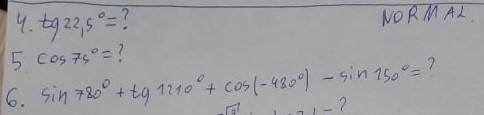 4. tg 22,5° = ?
NORMAL.
5. cos 75° = ?
6. sin 780° + tg 1210° + cos(-480°) - sin 150° = ?